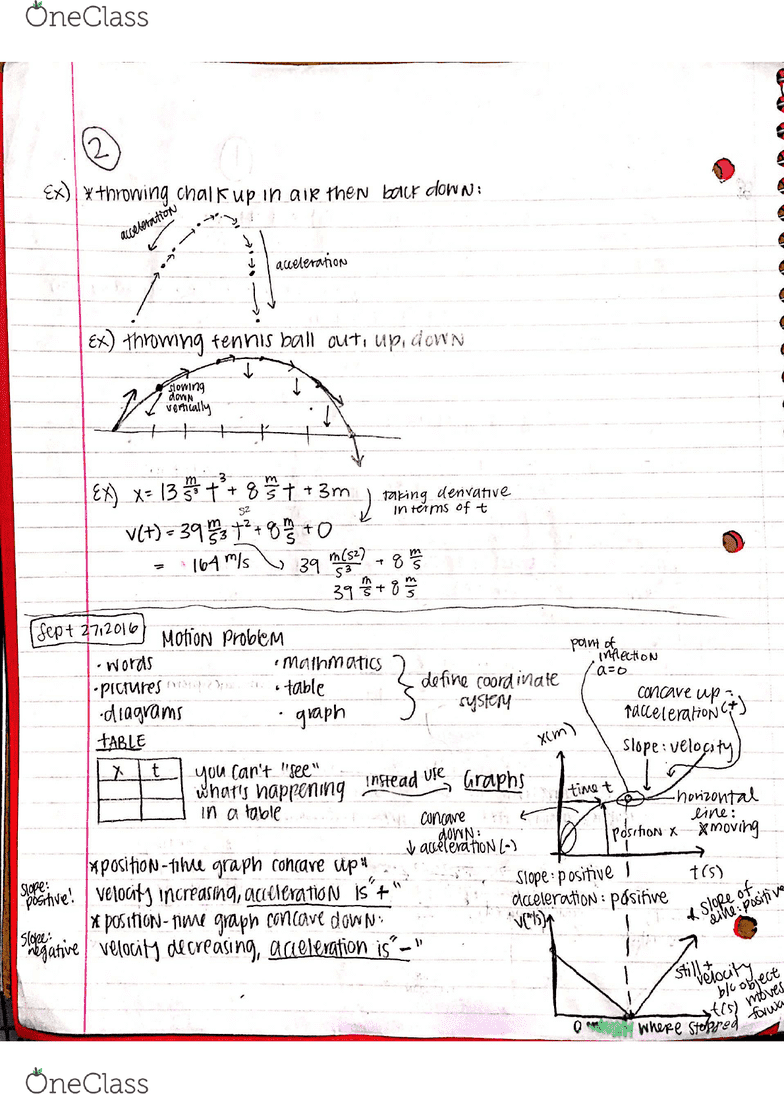 OneClass
2
Ex) * throwing chalk up in air then back down:
acceleration
acceleration
Ex) throwing tennis ball out, up, down
slowing
down
vertically
Ex) x = 13 m/s³ t³ + 8 m/s t + 3m
taking derivative
in terms of t
s²
v(t) = 39 m/s³ t² + 8 m/s + 0
= 164 m/s
39 m(s²)/s³ + 8 m/s
39 m/s + 8 m/s
Sept 27, 2016
Motion Problem
• words
• pictures
• diagrams
• mathmatics
• table
• graph
define coordinate
system
TABLE
x t
you can't "see"
what's happening
in a table
instead use
Graphs
point of
inflection
a=0
concave up =
↑acceleration (+)
slope: velocity
x(m)
time t
horizontal
line:
moving
position x
t(s)
concave
down:
↓ acceleration (-)
slope: positive
acceleration: positive
* position-time graph concave up:
slope:
positive!
velocity increasing, acceleration is "+"
* position-time graph concave down:
slope:
negative
velocity decreasing, acceleration is "-"
v(m/s)
slope of
line: positive
still +
velocity
b/c object
moves
forwa
t(s)
0
where stopped
OneClass